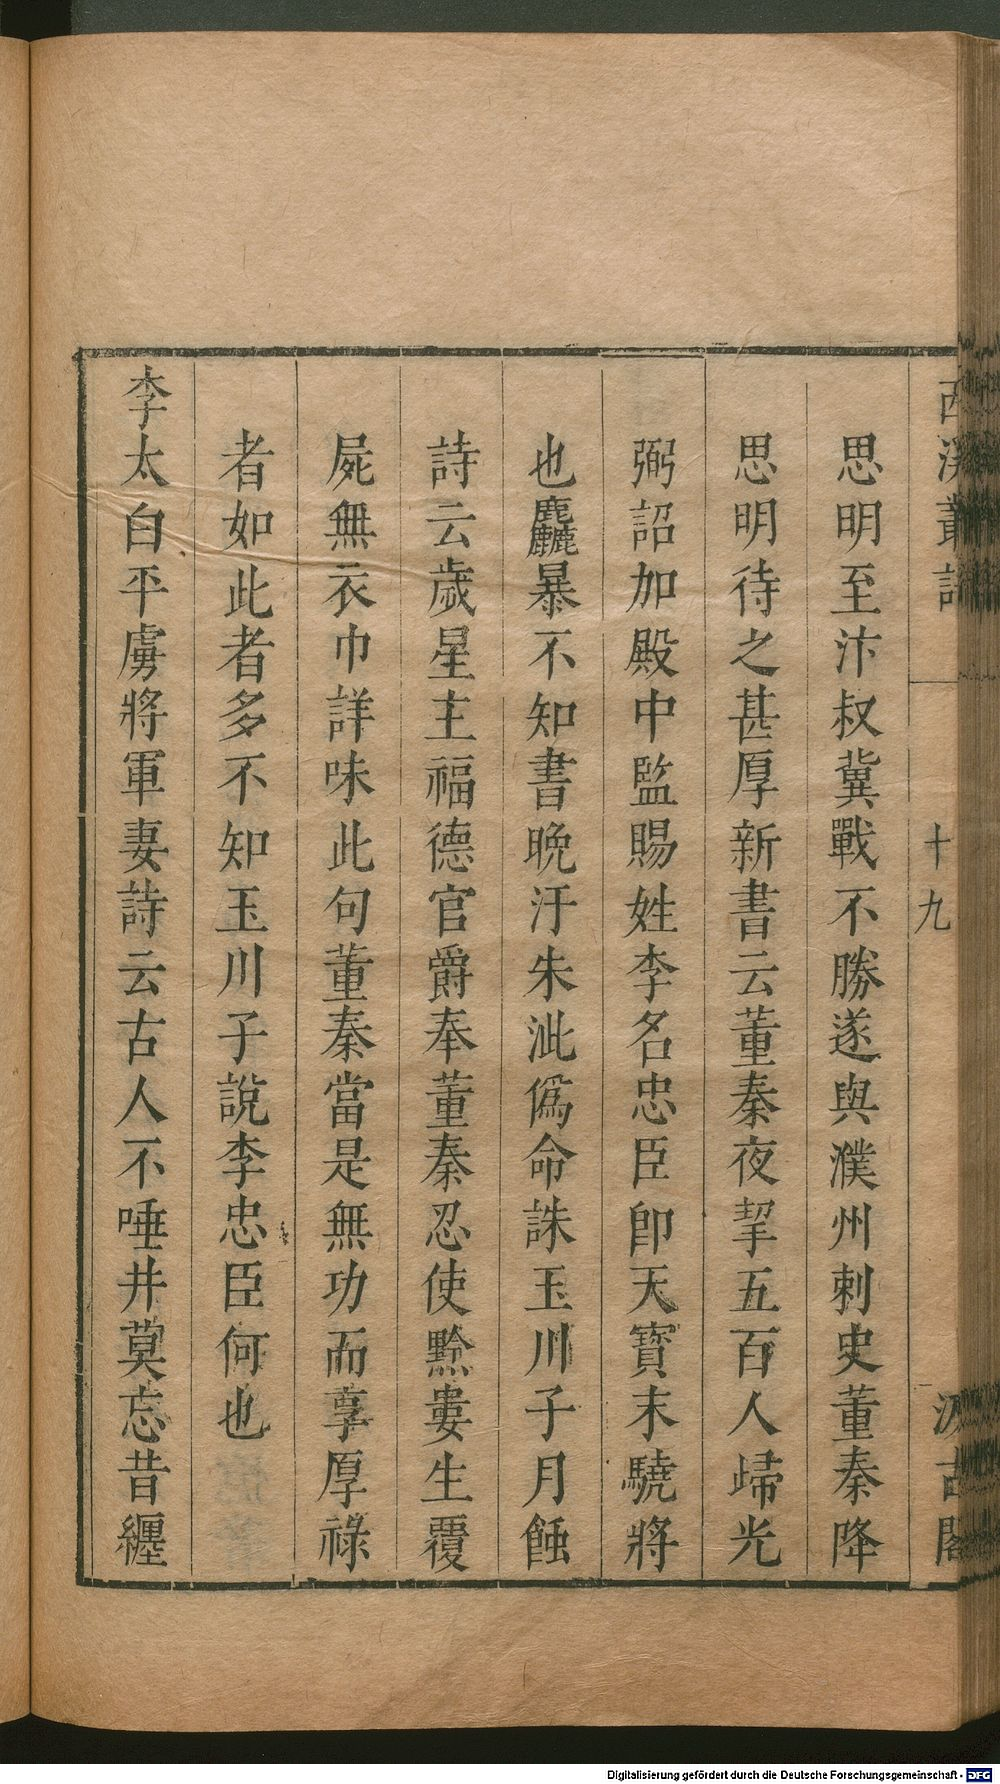 西溪叢語
十九
汲古閣
思明至汴叔兾戰不勝遂與濮州刺史董秦降
思明待之甚厚新書云董秦夜挈五百人歸光
弼詔加殿中監賜姓李名忠臣卽天寶末驍將
也麤暴不知書晚汙朱泚僞命誅玉川子月蝕
詩云歲星主福德官爵奉董秦忍使黔婁生覆
屍無衣巾詳味此句董秦當是無功而享厚祿
者如此者多不知玉川子說李忠臣何也
李太白平虜將軍妻詩云古人不唾井莫忘昔纏
Digitalisierung gefördert durch die Deutsche Forschungsgemeinschaft - DFG